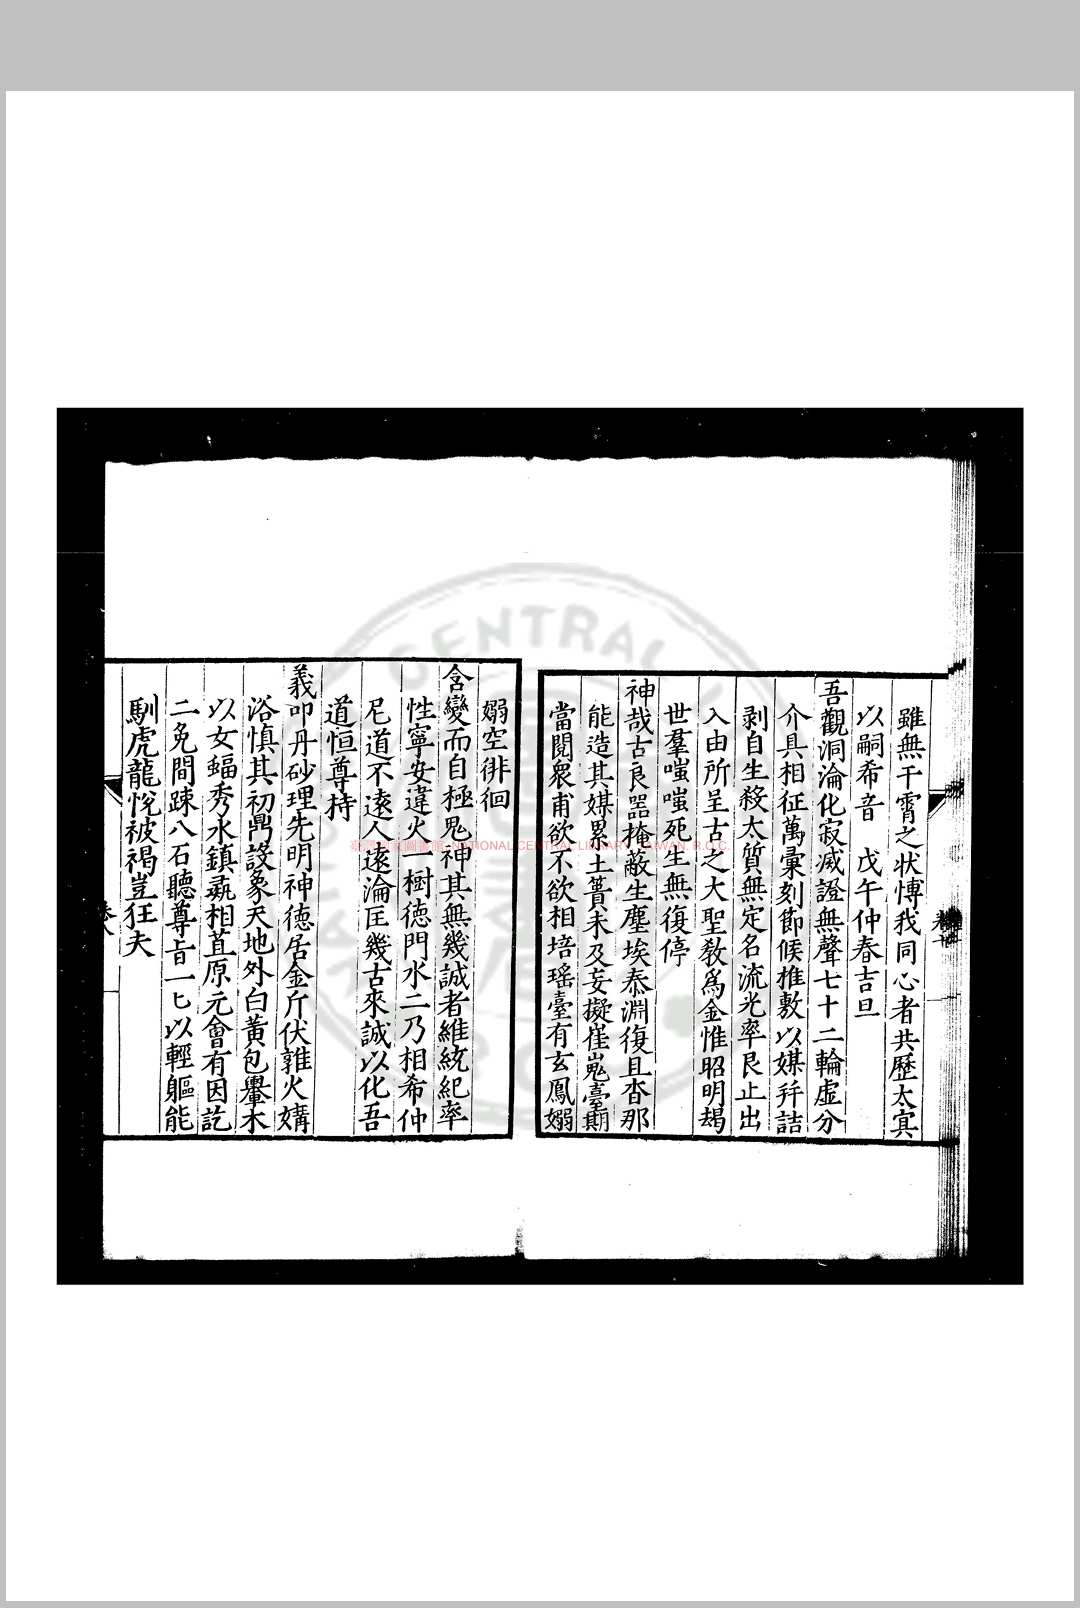 雖無干霄之狀愽我同心者共歷太㝠
以嗣希音 戊午仲春吉旦
吾觀洞淪化寂滅證無聲七十二輪虛分
介具相征萬彙刻節候推敷以媒幷詰
剥自生殺太質無定名流光率艮止出
入由所呈古之大聖敎爲金惟昭明朅
世羣嗤嗤死生無復停
神哉古良噐掩蔽生塵埃泰淵復且杳那
能造其媒累土簣未及妄擬崔嵬臺期
當閱衆甫欲不欲相培瑤臺有玄鳳嫋
嫋空徘徊
含變而自極鬼神其無幾誠者維統紀率
性寧安違火一樹德門水二乃相希仲
尼道不遠人遠淪匡幾古來誠以化吾
道恒尊持
義叩丹砂理先明神德居金斤伏雜火媾
浴慎其初鼎設象天地外白黃包轝木
以女蝠秀水鎮彘相苴原元會有因訖
二免間踈八石聽尊㫖一匕以輕軀能
馴虎龍悅被褐豈狂夫
臺灣國立圖書館 NATIONAL CENTRAL LIBRARY, TAIWAN, R.O.C.